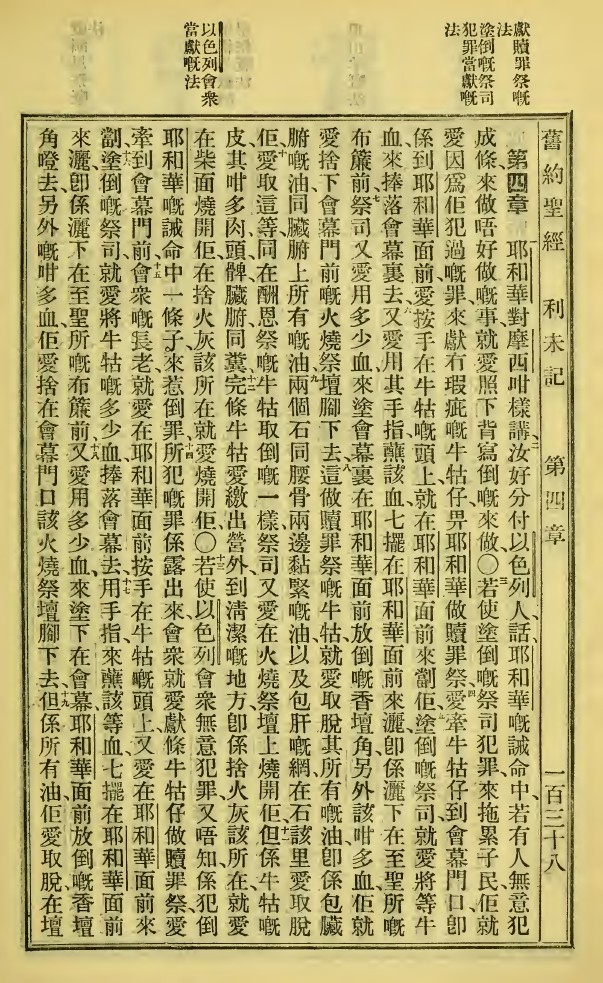 獻贖罪祭嘅
法
塗倒嘅祭司
犯罪當獻嘅
法
以色列會衆
當獻嘅法
舊約聖經 利未記 第四章 一百三十八
第四章 耶和華對摩西咁樣講、二汝好分付以色列人話、耶和華嘅誡命中、若有人無意犯
成條來做唔好做嘅事、就愛照下背寫倒嘅來做○三若使塗倒嘅祭司犯罪來拖累子民、佢就
愛因爲佢犯過嘅罪來獻冇瑕疵嘅牛牯仔畀耶和華做贖罪祭、四愛牽牛牯仔到會幕門口、卽
係到耶和華面前、愛按手在牛牯嘅頭上、就在耶和華面前來劏佢、五塗倒嘅祭司、就愛將等牛
血來捧落會幕裏去、六又愛用其手指蘸該血七擺在耶和華面前來灑、卽係灑下在至聖所嘅
布簾前、七祭司又愛用多少血、來塗會幕裏在耶和華面前放倒嘅香壇角、另外該咁多血、佢就
愛捨下會幕門前嘅火燒祭壇腳下去、八這做贖罪祭嘅牛牯、就愛取脫其所有嘅油、卽係包臟
腑嘅油、同臟腑上所有嘅油、九兩個石同腰骨兩邊黏緊嘅油、以及包肝嘅網、在石該里愛取脫
佢、十愛取這等、同在酬恩祭嘅牛牯取倒嘅一樣、祭司又愛在火燒祭壇上燒開佢、十一但係牛牯嘅
皮、其咁多肉、頭、髀、臟腑、同糞、十二完條牛牯愛繳出營外到淸潔嘅地方、卽係捨火灰該所在、就愛
在柴面燒開佢、在捨火灰該所在就愛燒開佢、○十三若使以色列會衆無意犯罪、又唔知係犯倒
耶和華嘅誡命中一條子、來惹倒罪、十四所犯嘅罪係露出來、會衆就愛獻條牛牯仔做贖罪祭、愛
牽到會幕門前、十五會衆嘅長老、就愛在耶和華面前按手在牛牯嘅頭上、又愛在耶和華面前來
劏、十六塗倒嘅祭司、就愛將牛牯嘅多少血捧落會幕去、十七用手指來蘸該等血、七擺在耶和華面前
來灑、卽係灑下在至聖所嘅布簾前、十八又愛用多少血、來塗下在會幕、耶和華面前放倒嘅香壇
角噔去、另外嘅咁多血、佢愛捨在會幕門口該火燒祭壇腳下去、十九但係所有油、佢愛取脫在壇